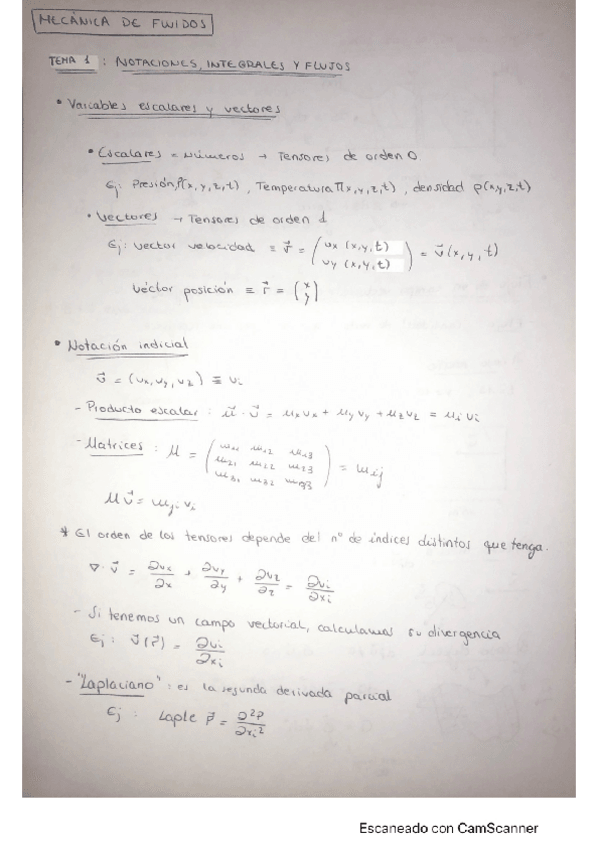 MECÁNICA DE FLUIDOS
TEMA 1 : NOTACIONES, INTEGRALES Y FLUJOS
• Variables escalares y vectores
• Escalares = números → Tensores de orden 0
Ej: Presión, P(x,y,z,t) , Temperatura T(x,y,z,t) , densidad ρ(x,y,z,t)
• Vectores → Tensores de orden 1
Ej: vector velocidad ≡ v⃗ = ( vx (x,y,t) vy (x,y,t) ) = v⃗(x,y,t)
Vector posición ≡ r⃗ = ( x y )
• Notación indicial
v⃗ = (vx, vy, vz) ≡ vi
- Producto escalar : u⃗ · v⃗ = ux vx + uy vy + uz vz = ui vi
- Matrices : M = ( m11 m12 m13 m21 m22 m23 m31 m32 m33 ) = mij
M v⃗ = mji vi
* El orden de los tensores depende del nº de índices distintos que tenga.
∇ · v⃗ = ∂vx/∂x + ∂vy/∂y + ∂vz/∂z = ∂vi/∂xi
- Si tenemos un campo vectorial, calculamos su divergencia
Ej : v⃗(r⃗) = ∂vi/∂xi
- "Laplaciano" : es la segunda derivada parcial
Ej : Laplc P⃗ = ∂²P/∂xi²
Escaneado con CamScanner